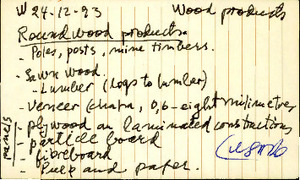 W 24-12-93 Wood products
Round wood products.
- Poles, posts, mine timbers.
- Sawn wood.
- Lumber (logs to lumber)
- Veneer ( , 0,6 - eight milimetres
- plywood an laminated constructions
- particle board
- fibreboard
- Pulp and paper.
panels